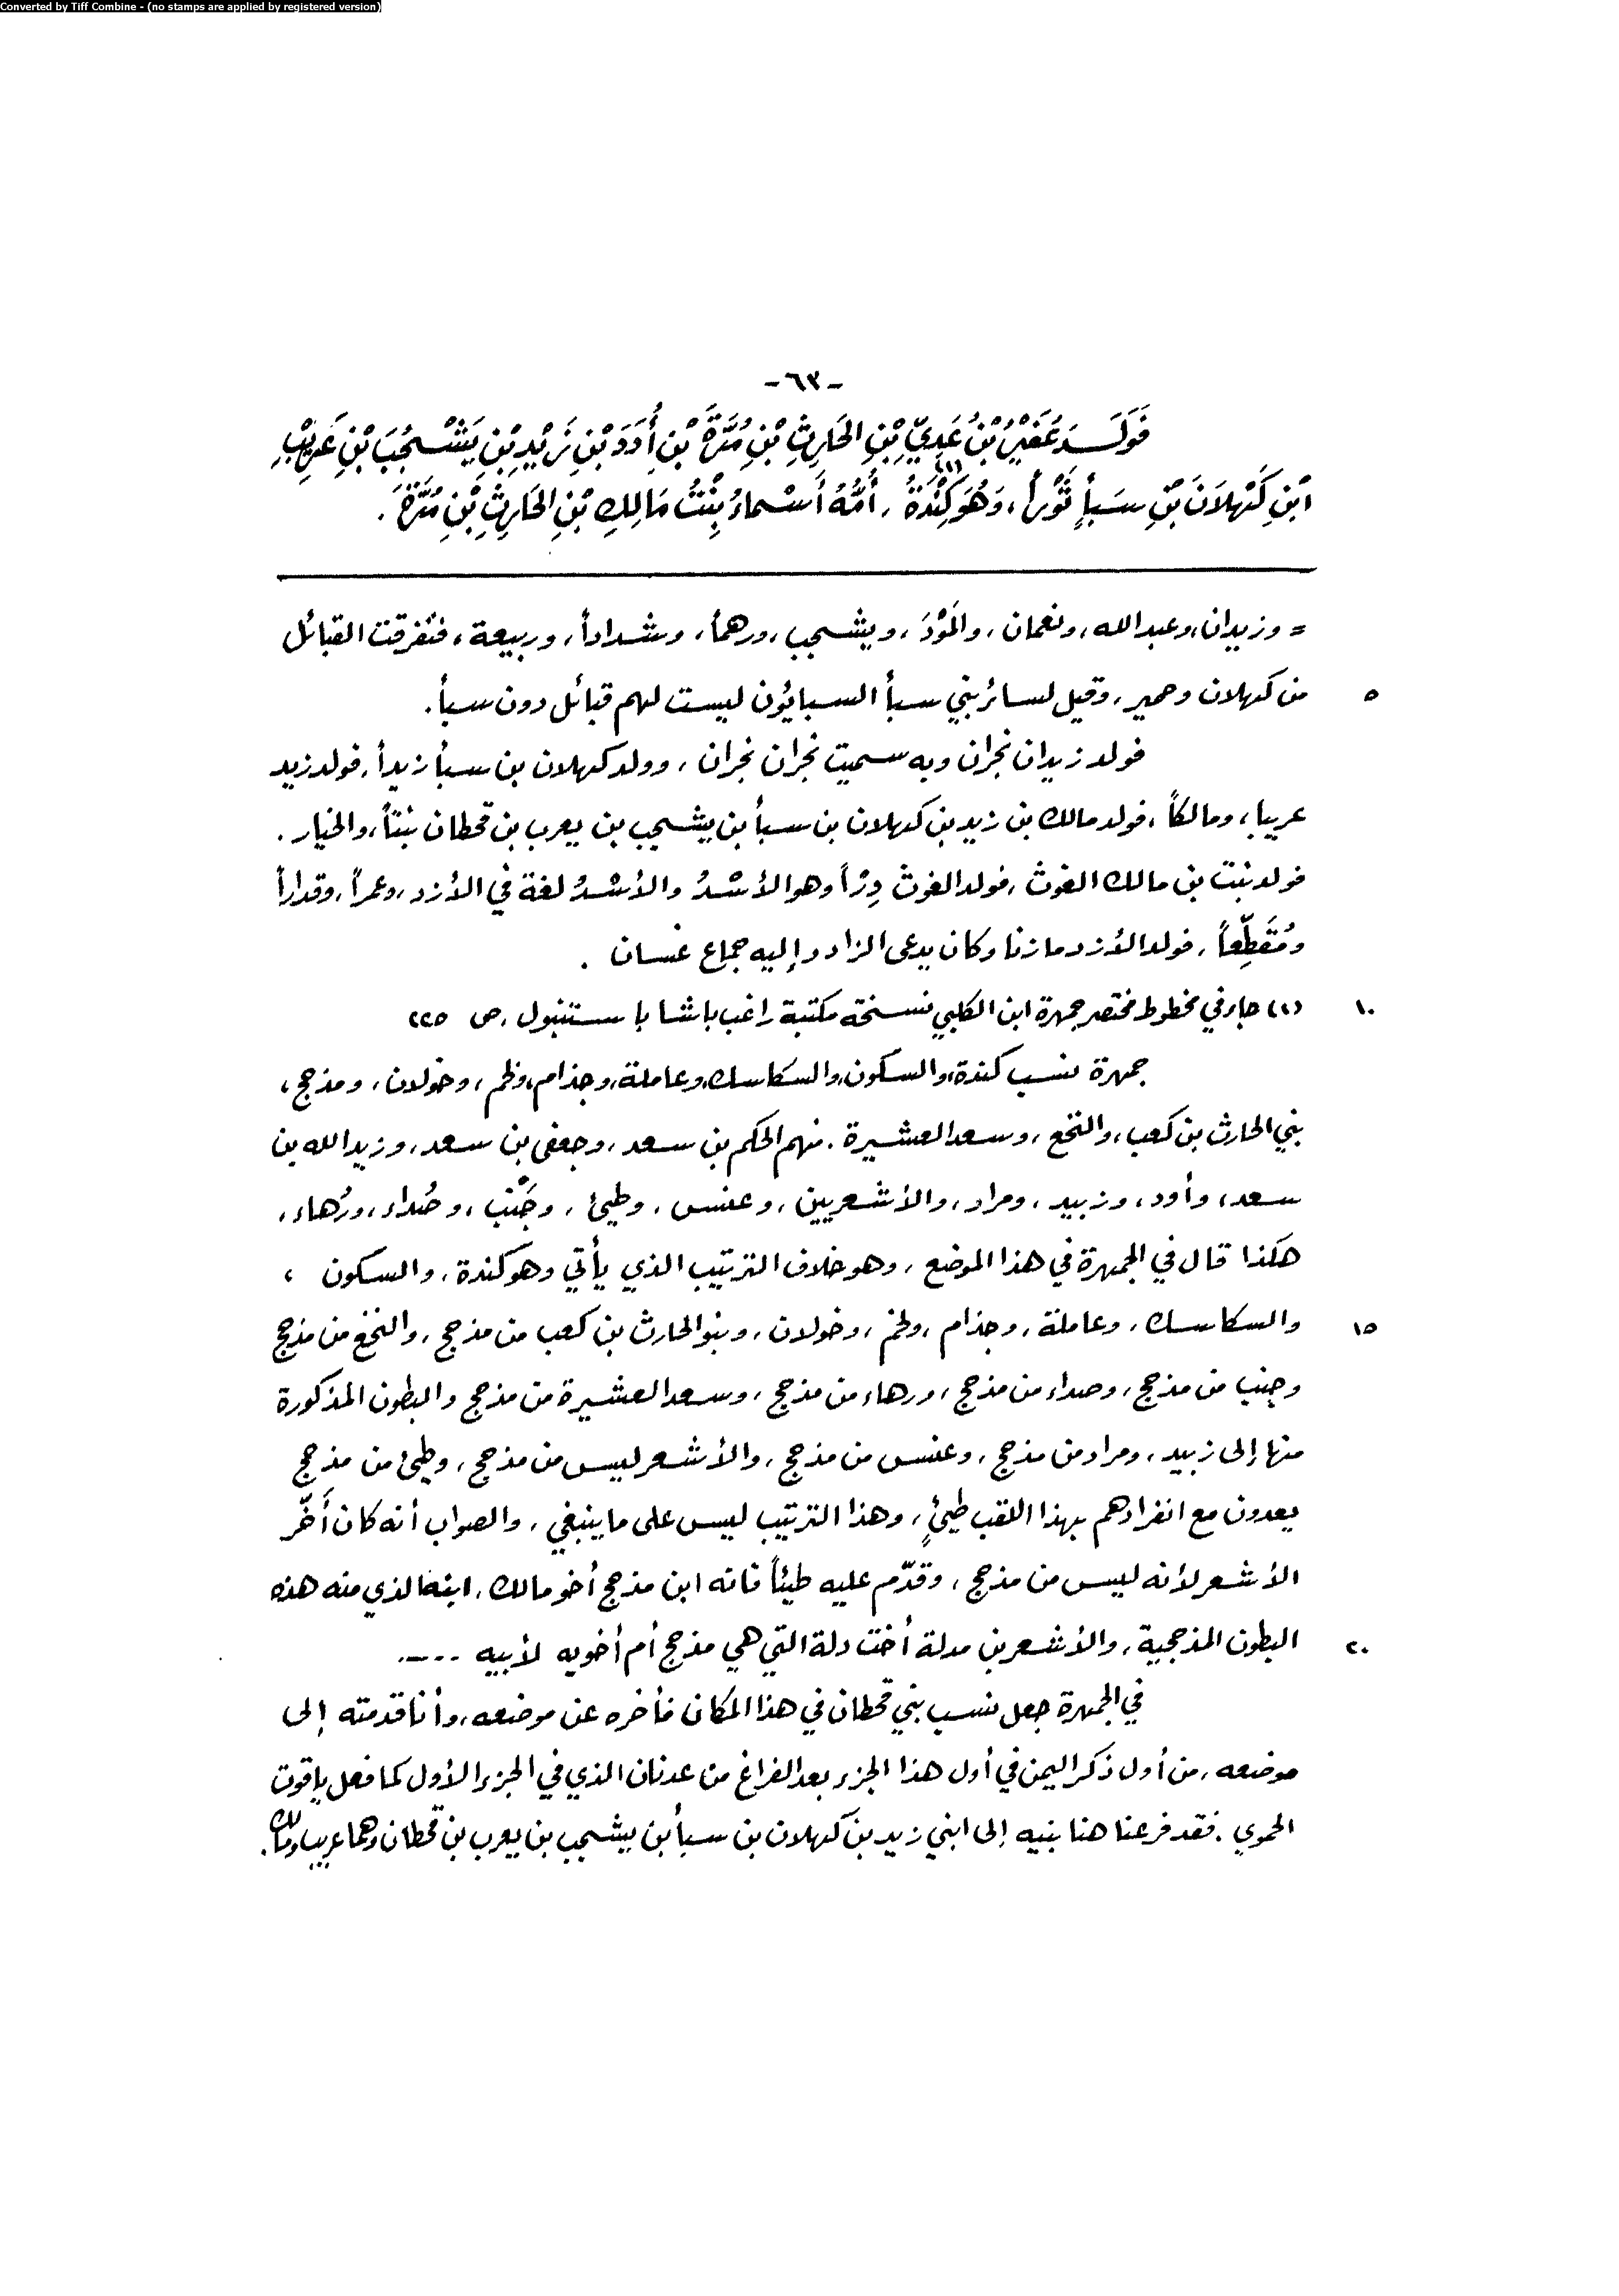 Converted by Tiff Combine - (no stamps are applied by registered version)
-٦٣-
فَوَلَدَ عُفَيْرُ بْنُ عَدِيِّ بْنِ الحَارِثِ بْنِ مُرَّةَ بْنِ أُدَدَ بْنِ زَيْدِ بْنِ يَشْجُبَ بْنِ عَرِيْبِ
ابْنِ كَهْلَانَ بْنِ سَبَأٍ ثَوْراً، وَهُوَ كِنْدَةُ (١)، أُمُّهُ أَسْمَاءُ بِنْتُ مَالِكِ بْنِ الحَارِثِ بْنِ مُرَّةَ.
= وزيدان، وعبد الله، ونعمان، والمَوْدَ، ويشجب، ورهماً، وشداداً، وربيعة، فتفرقت القبائل
٥ من كهلان وحمير، وقيل لسائر بني سبأ السبايُون ليست لهم قبائل دون سبأ.
فولد زيدان نجران وبه سميت نجران نجران، وولد كهلان بن سبأ زيداً، فولد زيد
عريبا، ومالكاً، فولد مالك بن زيد بن كهلان بن سبأ بن يشجب بن يعرب بن قحطان نبتاً، والخيار.
فولد نبت بن مالك الغوث، فولد الغوث دِرْاً وهو الأسْدُ والأسْدُ لغة في الأزد، وعمراً، وقداراً
ومُقَطِّعاً، فولد الأزد مازنا وكان يدعى الزاد وإليه جماع غسان .
١٠ (١) جاء في مخطوط مختصر جمهرة ابن الكلبي نسخة مكتبة راغب باشا باستنبول، ص ٢٢٥
جمهرة نسب كندة، والسكون، والسكاسك، وعاملة، وجذام، ولخم، وخولان، ومذحج،
بني الحارث بن كعب، والنخع، وسعد العشيرة. منهم الحكم بن سعد، وجعفى بن سعد، وزيد الله بن
سعد، وأود، وزبيد، ومراد، والأشعريين، وعنس، وطيئ، وجَنْب، وصُداء، ورُهاء،
هكذا قال في الجمهرة في هذا الموضع، وهو خلاف الترتيب الذي يأتي وهو كندة، والسكون ،
١٥ والسكاسك، وعاملة، وجذام، ولخم، وخولان، وبنو الحارث بن كعب من مذحج، والنخع من مذحج
وجنب من مذحج، وصداء من مذحج، ورهاء من مذحج، وسعد العشيرة من مذحج والبطون المذكورة
منها إلى زبيد، ومراد من مذحج، وعنس من مذحج، والأشعر ليس من مذحج، وطيئ من مذحج
يعدون مع انفرادهم بهذا اللقب طيئٍ، وهذا الترتيب ليس على ما ينبغي، والصواب أنه كان أَخَّر
الأشعر لأنه ليس من مذحج، وقدّم عليه طيئاً فانه ابن مذحج أخو مالك، ابنها الذي منه هذه
٢٠ البطون المذحجية، والأشعر بن مدلة أخت دلة التي هي مذحج أم أخويه لأبيه ....
في الجمهرة جعل نسب بني قحطان في هذا المكان فأخره عن موضعه، وأنا قدمته إلى
موضعه، من أول ذكر اليمن في أول هذا الجزء بعد الفراغ من عدنان الذي في الجزء الأول كما فعل ياقوت
الحموي. فقد فرعنا هنا بنيه إلى ابني زيد بن كهلان بن سبأ بن يشجب بن يعرب بن قحطان وهما عريب ومالك.